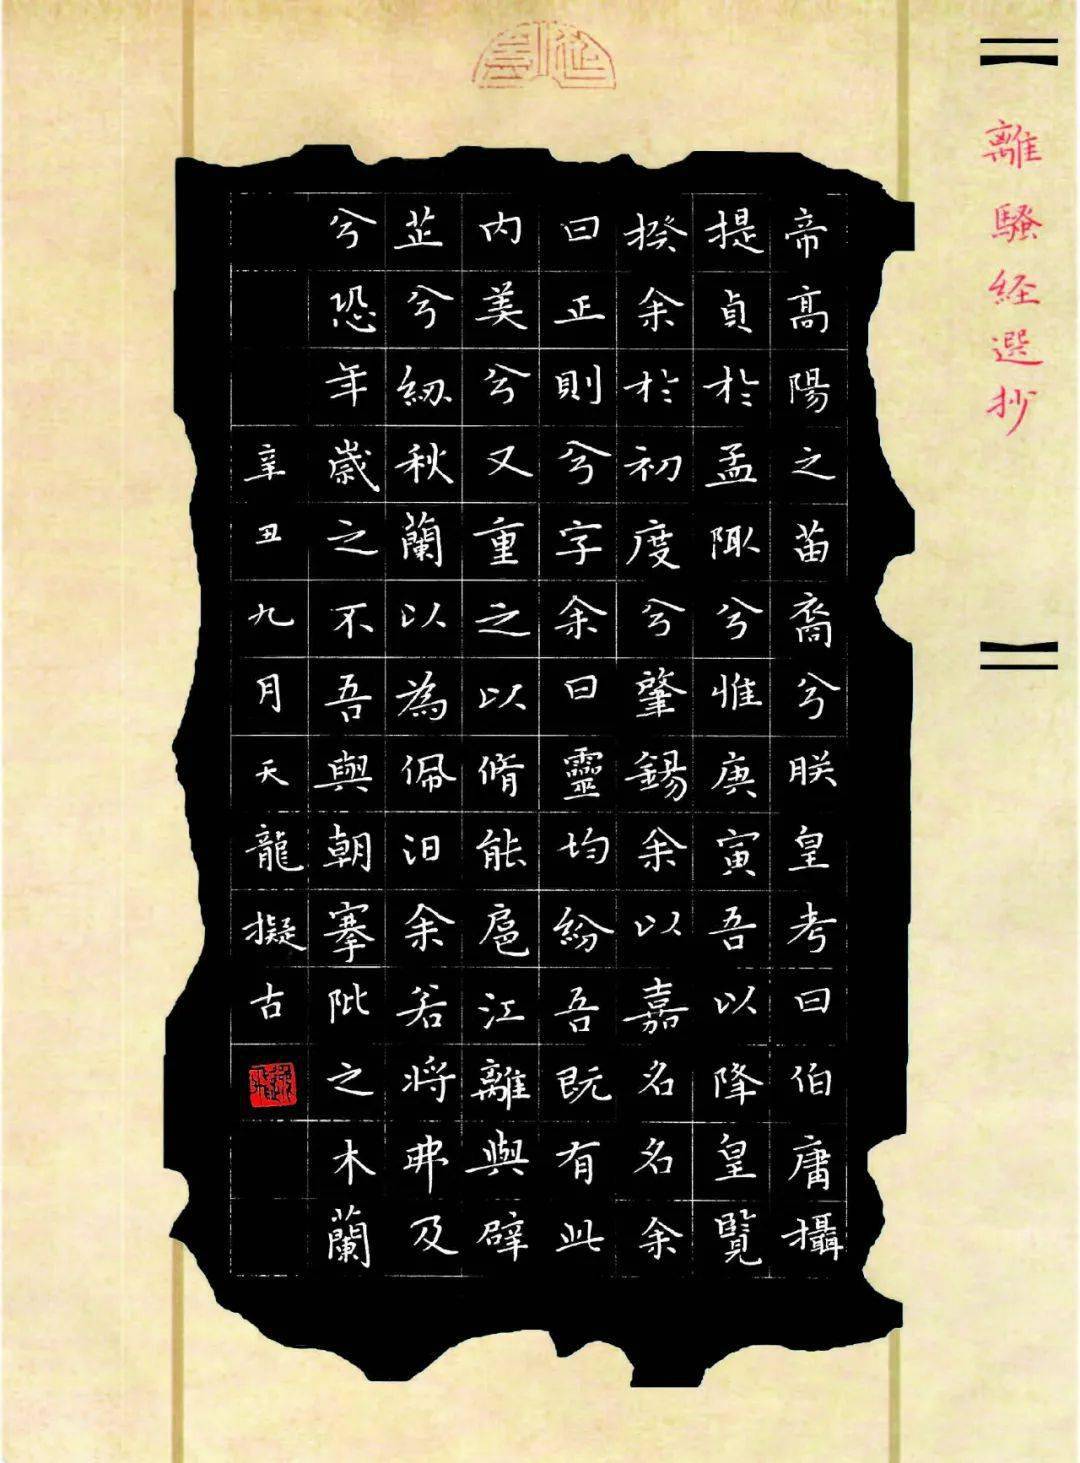 離騷経選抄
帝高陽之苗裔兮朕皇考曰伯庸攝
提貞於孟陬兮惟庚寅吾以降皇覽
揆余於初度兮肇錫余以嘉名名余
曰正則兮字余曰靈均紛吾既有此
内美兮又重之以脩能扈江離與辟
芷兮紉秋蘭以為佩汩余若將弗及
兮恐年歲之不吾與朝搴阰之木蘭
辛丑九月天龍擬古